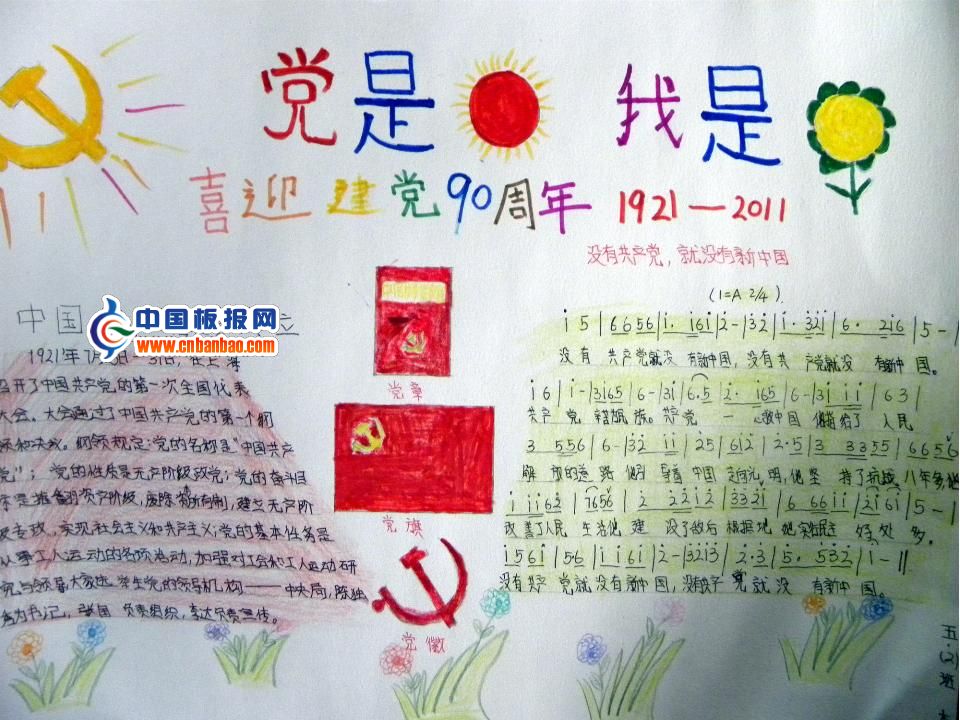 党是 我是
喜迎建党90周年 1921—2011
没有共产党,就没有新中国
中国
中国板报网
www.cnbanbao.com
立
1921年7月
召开了中国共产党的第一次全国代表
大会。大会通过了中国共产党的第一个纲
领和决议。纲领规定:党的名称是"中国共产
党";党的性质是无产阶级政党;党的奋斗目
标是推翻资产阶级,废除资本所有制,建立无产阶
级专政,实现社会主义和共产主义;党的基本任务是
从事工人运动的各项活动,加强对工会和工人运动研
究与领导
党的领导机构——中央局,陈独
秀为书记,张国 负责组织,李达负责宣传。
党章
党旗
党徽
(1=A 2/4)
i 5 | 6 6 5 6 | i· i 6 i | 2 - | 3 2 | i· 3 2 i | 6· 2 i 6 | 5 -
没有 共产党就没 有新中国,没有共 产党就没 有新中国。
i 6 | i - | 3 i 6 5 | 6 - | 3 i | 6·5 | 2· i 6 5 | 6 - | i i i | 6 3 |
共产 党 辛劳为民族。共产党 一 心救中国 他指给了 人民
3 5 5 6 | 6 - | 3 2 i i | 2 5 | 6 i 2 | 2·5 | 3 3 3 5 5 | 6 6 5 6
解 放的道路 他领 导着 中国 走向光 明,他坚 持了抗战 八年多他
改善了人民 生活他建 设了敌后根据地 他实行民主 好处 多。
没有共产 党就没有新中国,没有共产 党就没 有新中国。
五·(2)班